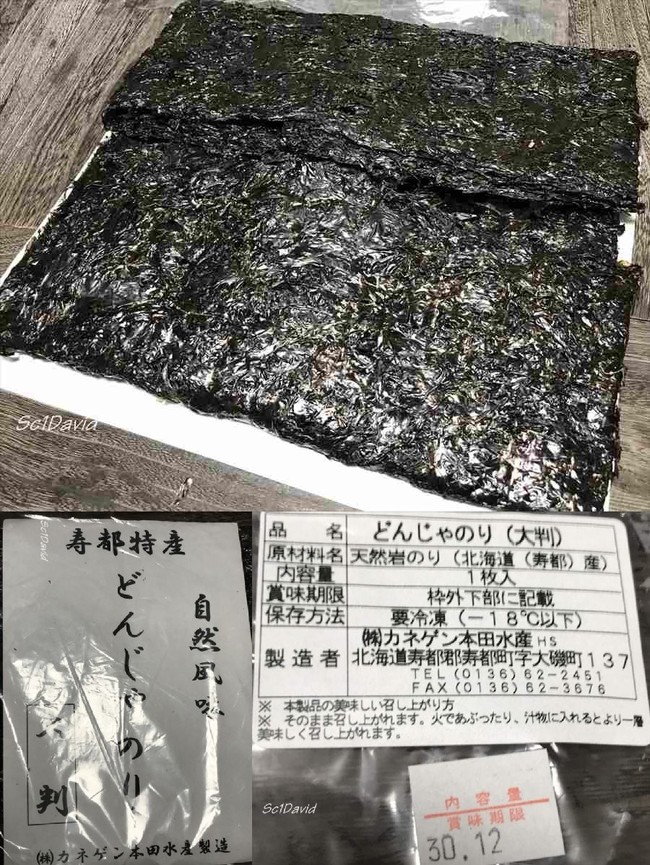 Sc1David
寿都特産
どんじゃのり
自然風味
大判
㈱カネゲン本田水産製造
Sc1David
品名 どんじゃのり（大判）
原材料名 天然岩のり（北海道（寿都）産）
内容量 1枚入
賞味期限 枠外下部に記載
保存方法 要冷凍（－18℃以下）
製造者 ㈱カネゲン本田水産HS
北海道寿都郡寿都町字大磯町137
TEL(0136)62-2451
FAX(0136)62-3676
※ 本製品の美味しい召し上がり方
※ そのまま召し上がれます。火であぶったり、汁物に入れるとより一層
美味しく召し上がれます。
Sc1David
内容量
賞味期限
30.12